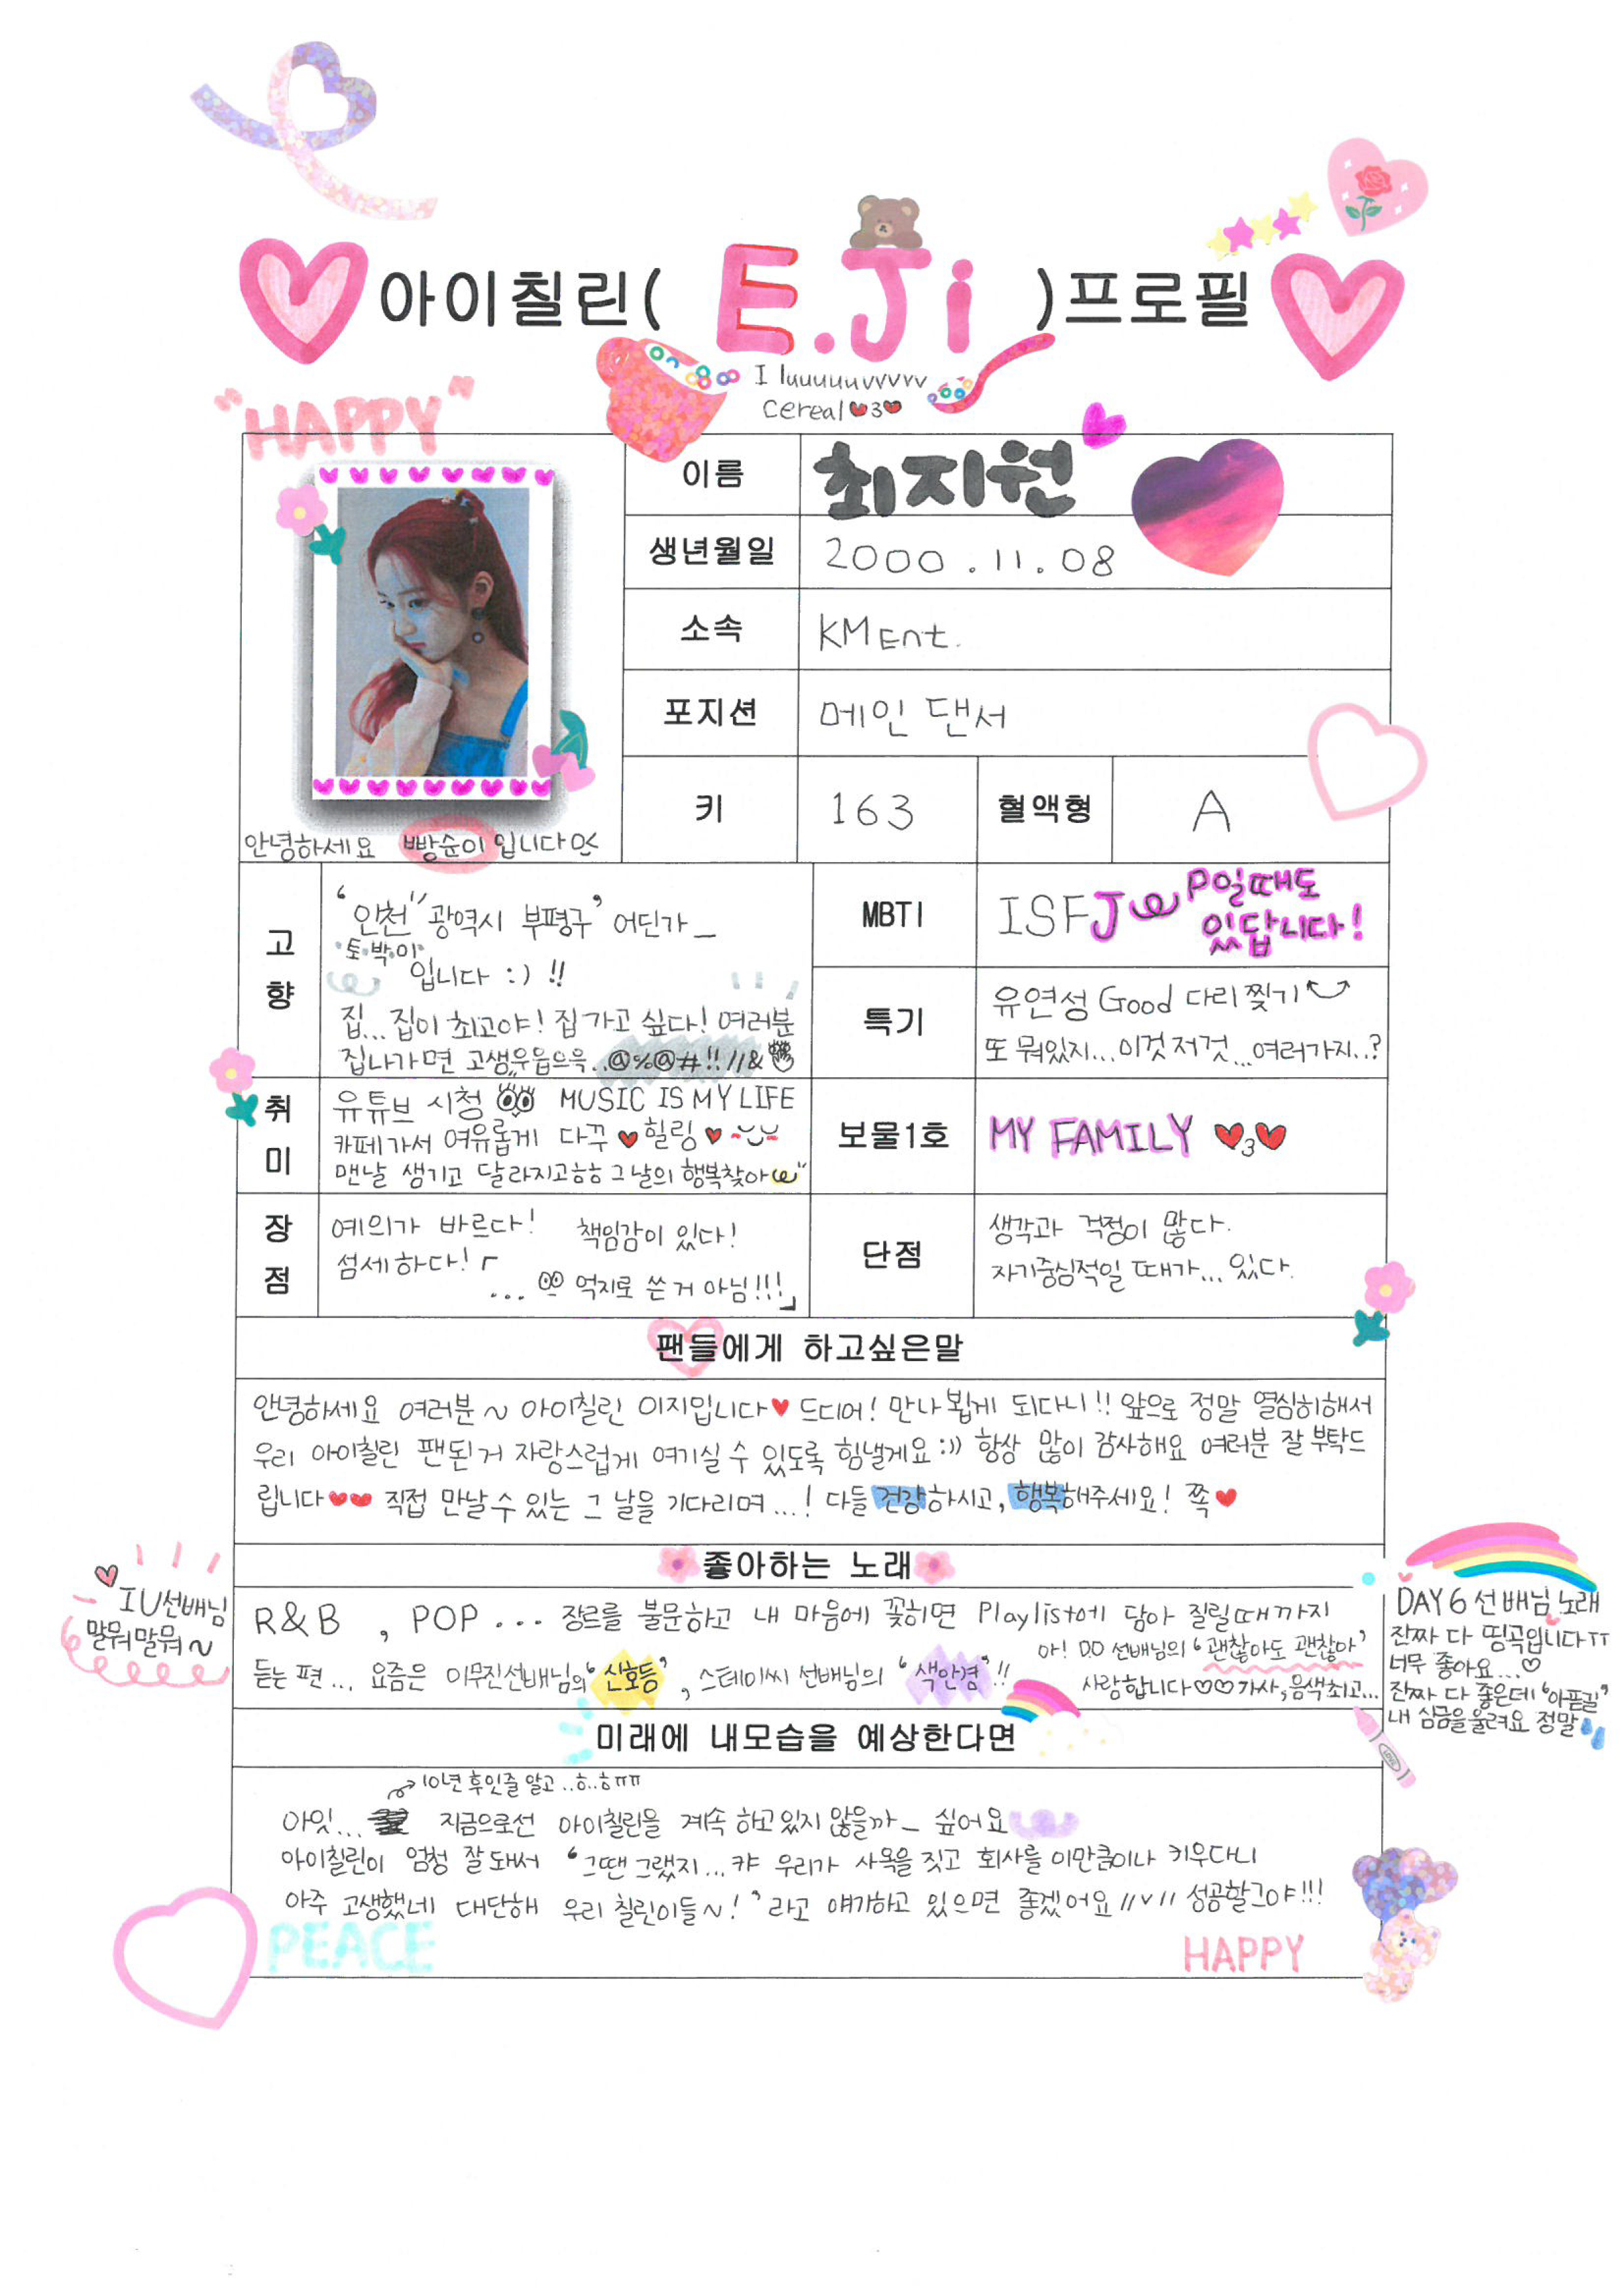 아이칠린( E.Ji )프로필
I luuuuuvvvvv
cereal♥3♥
"HAPPY"
안녕하세요 빵순이입니다
이름 최지원
생년월일 2000.11.08
소속 KM Ent.
포지션 메인 댄서
키 163 혈액형 A
고향
'인천" 광역시 부평구' 어딘가_
토.박.이
입니다 :) !!
집... 집이 최고야! 집 가고 싶다! 여러분
집나가면 고생우웁으윽..@%@#!!//&
MBTI ISFJ P일때도
있답니다!
특기 유연성 Good 다리찢기
또 뭐있지...이것저것...여러가지..?
취미
유튜브 시청 MUSIC IS MY LIFE
카페가서 여유롭게 다꾸 ♥ 힐링 ♥
맨날 생기고 달라지고ㅎㅎ 그날의 행복찾아
보물1호 MY FAMILY ♥3♥
장점
예의가 바르다! 책임감이 있다!
섬세하다!「
... 억지로 쓴 거 아님!!!」
단점 생각과 걱정이 많다.
자기중심적일 때가... 있다.
팬들에게 하고싶은말
안녕하세요 여러분~ 아이칠린 이지입니다♥ 드디어! 만나뵙게 되다니!! 앞으로 정말 열심히해서
우리 아이칠린 팬된거 자랑스럽게 여기실 수 있도록 힘낼게요:)) 항상 많이 감사해요 여러분 잘 부탁드
립니다♥♥ 직접 만날 수 있는 그 날을 기다리며...! 다들 건강하시고, 행복해주세요! 쪽♥
좋아하는 노래
♥IU선배님
말뭐말뭐~
R&B , POP ... 장르를 불문하고 내 마음에 꽂히면 Playlist에 담아 질릴때까지
듣는 편... 요즘은 이무진선배님의 '신호등' , 스테이씨 선배님의 '색안경'!!
아! D.O 선배님의 '괜찮아도 괜찮아'
사랑합니다♡♡가사, 음색최고...
DAY6 선배님 노래
진짜 다 띵곡입니다ㅠㅠ
너무 좋아요...♡
진짜 다 좋은데 "아픈길"
내 심금을울려요 정말
미래에 내모습을 예상한다면
10년 후인줄 알고..ㅎ..ㅎㅠㅠ
아잇... 지금으로선 아이칠린을 계속 하고있지 않을까_ 싶어요
아이칠린이 엄청 잘돼서 "그땐 그랬지... 캬 우리가 사옥을 짓고 회사를 이만큼이나 키우다니
아주 고생했네 대단해 우리 칠린이들~!"라고 얘기하고 있으면 좋겠어요//v// 성공할그야!!!
PEACE
HAPPY